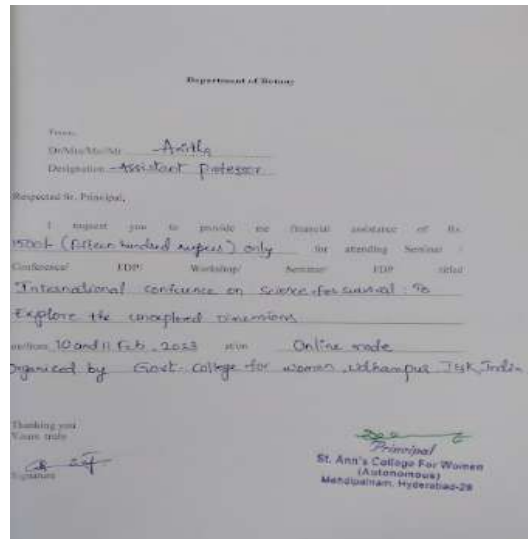 Department of Botany
From:
Dr/Mrs/Ms/Mr
Designation - Assistant Professor
Respected Sr. Principal,
I request you to provide me financial assistance of Rs.
1500/- (fifteen hundred rupees) only for attending Seminar /
Conference/ FDP/ Workshop/ Seminar/ FDP titled
International conference on Science for survival : To
Explore the unexplored Dimensions
on/from 10 and 11 Feb, 2023 Online mode
Organized by Govt. College for women, Udhampur J&K, India
Thanking you
Yours truly
Signature
Principal
St. Ann's College For Women
(Autonomous)
Mehdipatnam, Hyderabad-28